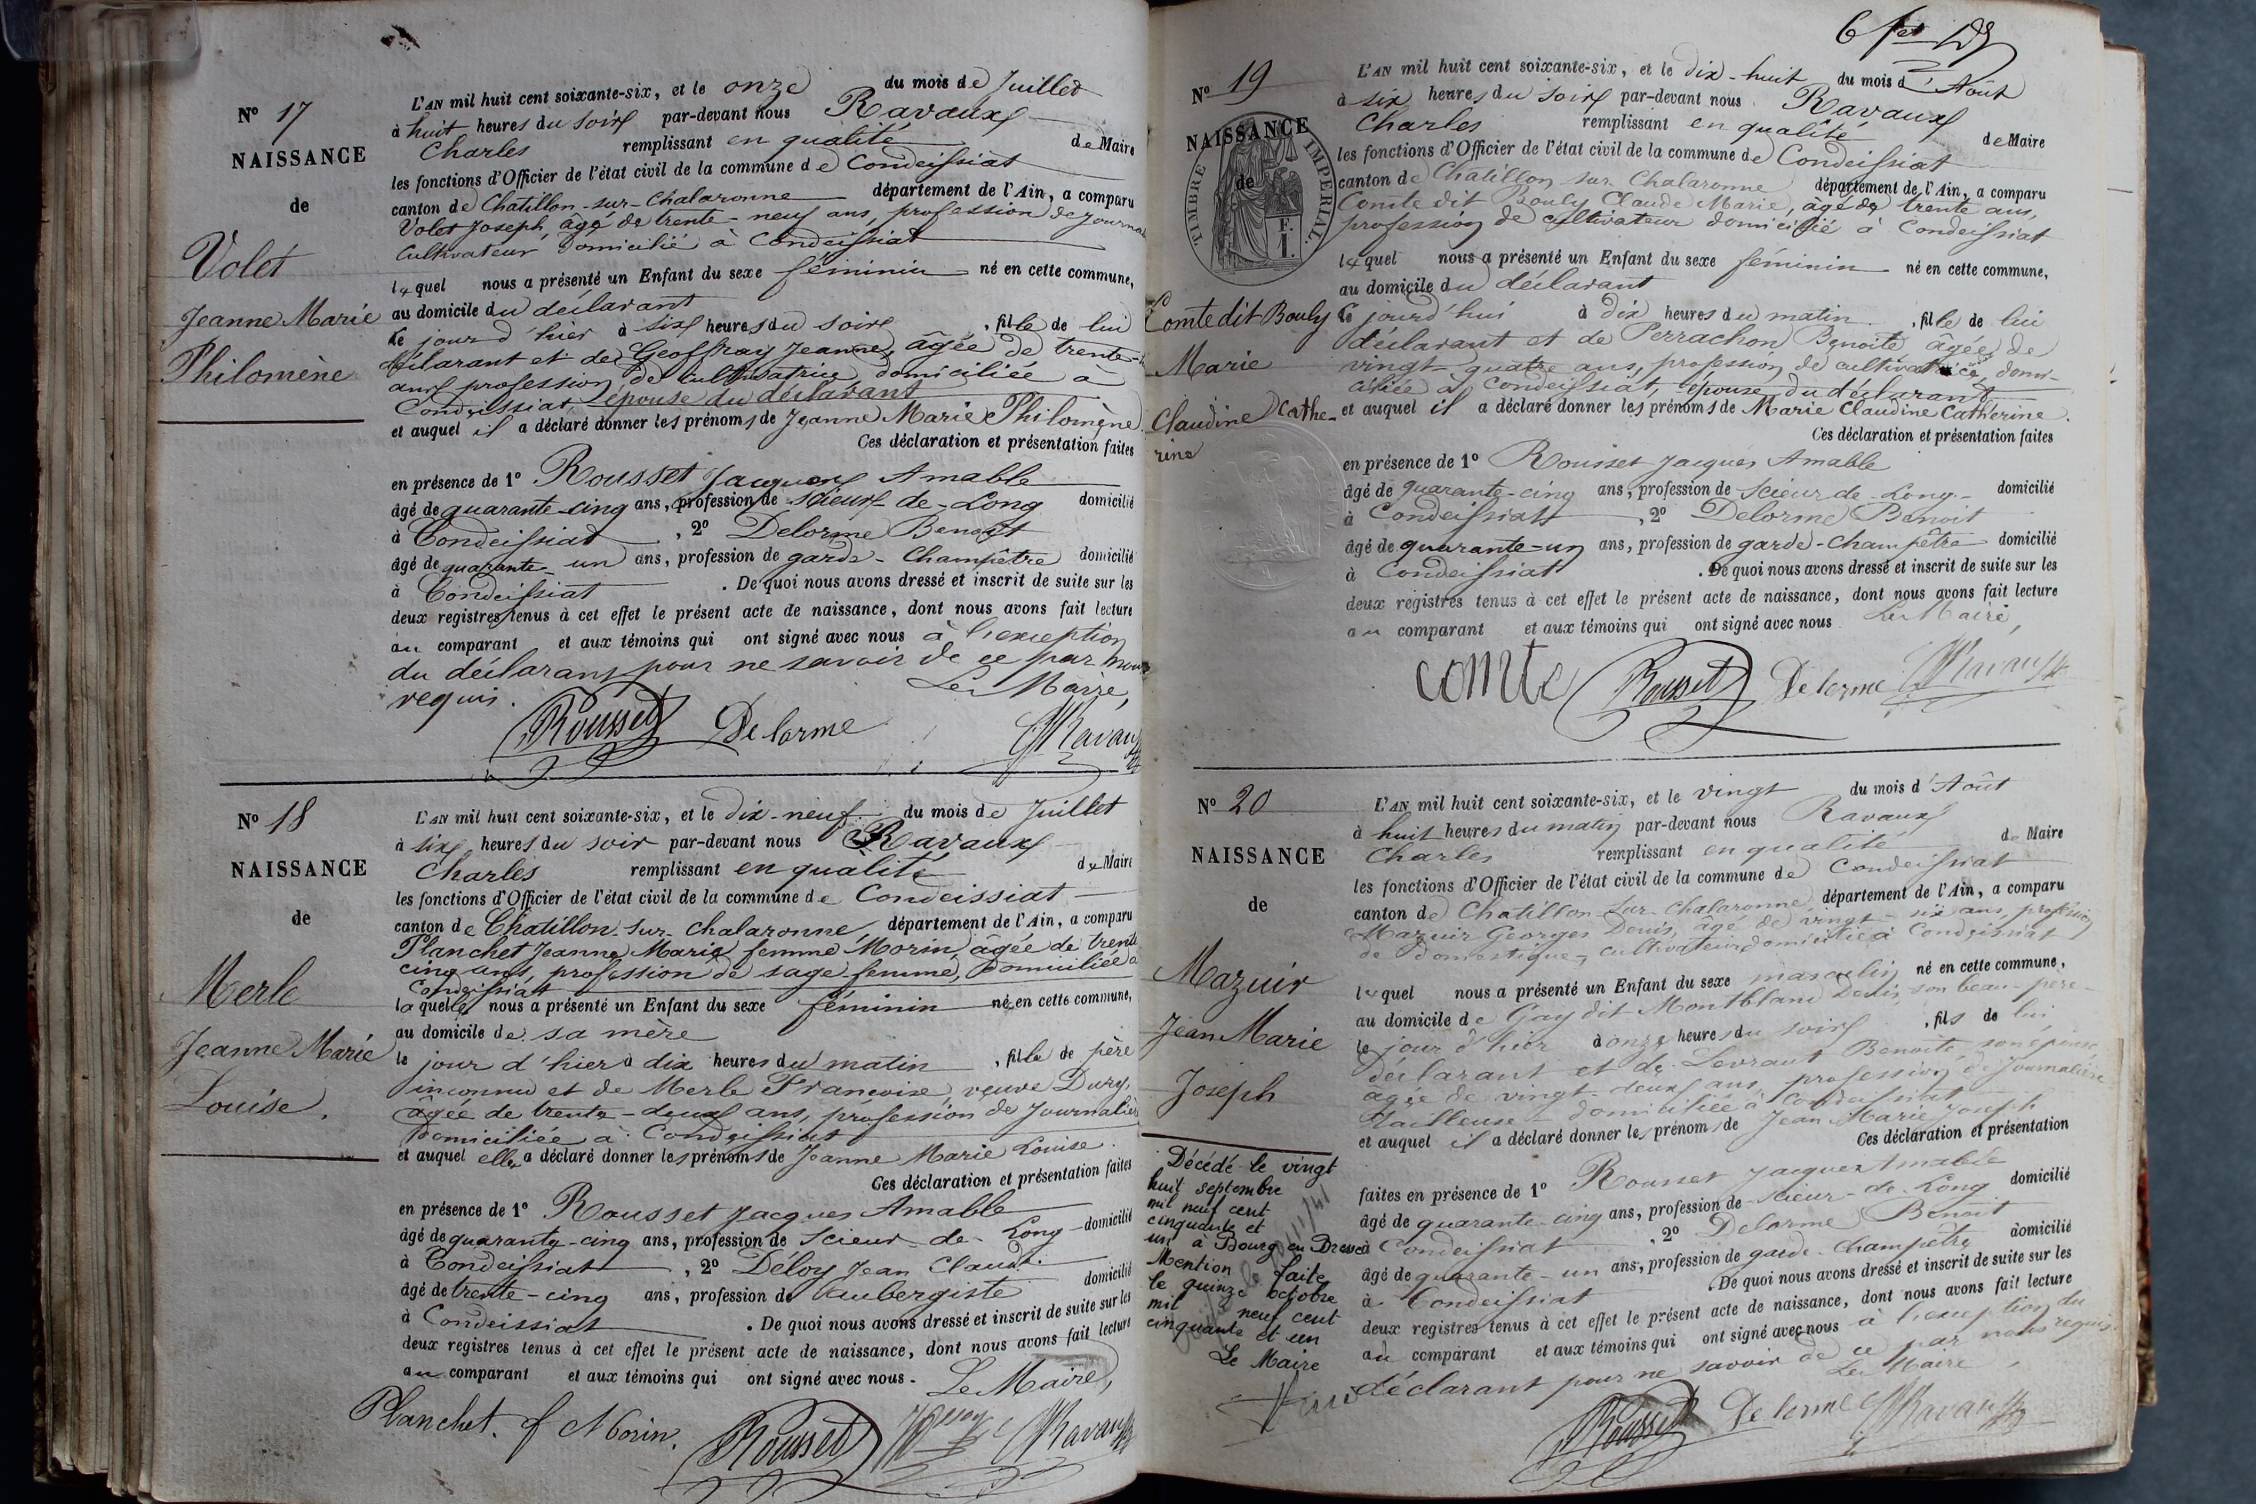 N° 17
NAISSANCE
de
Volet
Jeanne Marie
Philomène
L'AN mil huit cent soixante-six, et le onze du mois de Juillet
à huit heures du soir par-devant nous Ravaux
Charles remplissant en qualité de Maire
les fonctions d'Officier de l'état civil de la commune de Condeissiat
canton de Chatillon-sur-Chalaronne département de l'Ain, a comparu
Volet Joseph, âgé de trente-neuf ans, profession de
Cultivateur domicilié à Condeissiat
lequel nous a présenté un Enfant du sexe féminin né en cette commune,
au domicile du déclarant
le jour d'hier à six heures du soir, fille de lui
déclarant et de Geoffray Jeanne, âgée de trente-
ans profession de cultivatrice domiciliée à
Condeissiat, épouse du déclarant
et auquel il a déclaré donner les prénoms de Jeanne Marie Philomène
Ces déclaration et présentation faites
en présence de 1° Rousset Jacques Amable
âgé de quarante-cinq ans, profession de scieur-de-Long domicilié
à Condeissiat, 2° Delorme Benoit
âgé de quarante-un ans, profession de garde-Champêtre domicilié
à Condeissiat. De quoi nous avons dressé et inscrit de suite sur les
deux registres tenus à cet effet le présent acte de naissance, dont nous avons fait lecture
au comparant et aux témoins qui ont signé avec nous à l'exception
du déclarant pour ne savoir de ce par nous
requis. Le Maire,
Rousset Delorme Ravaux
N° 18
NAISSANCE
de
Merle
Jeanne Marie
Louise.
L'AN mil huit cent soixante-six, et le dix-neuf du mois de Juillet
à six heures du soir par-devant nous Ravaux
Charles remplissant en qualité de Maire
les fonctions d'Officier de l'état civil de la commune de Condeissiat
canton de Chatillon sur Chalaronne département de l'Ain, a comparu
Planchet Jeanne Marie femme Morin, âgée de trente
cinq ans, profession de sage femme, domiciliée à
Condeissiat
laquelle nous a présenté un Enfant du sexe féminin né en cette commune,
au domicile de sa mère
le jour d'hier à dix heures du matin, fille de père
inconnu et de Merle Françoise, veuve Dury,
âgée de trente-deux ans, profession de Journalière
domiciliée à Condeissiat
et auquel elle a déclaré donner les prénoms de Jeanne Marie Louise.
Ces déclaration et présentation faites
en présence de 1° Rousset Jacques Amable
âgé de quarante-cinq ans, profession de Scieur-de-Long domicilié
à Condeissiat, 2° Déloy Jean Claude.
âgé de trente-cinq ans, profession de aubergiste domicilié
à Condeissiat. De quoi nous avons dressé et inscrit de suite sur les
deux registres tenus à cet effet le présent acte de naissance, dont nous avons fait lecture
au comparant et aux témoins qui ont signé avec nous. Le Maire,
Planchet. f Morin. Rousset Ravaux
N° 19
NAISSANCE
de
TIMBRE IMPERIAL.
Comte dit Bouly
Marie
Claudine Cathe-
rine
L'AN mil huit cent soixante-six, et le dix-huit du mois d'Août
à six heures du soir par-devant nous Ravaux
Charles remplissant en qualité de Maire
les fonctions d'Officier de l'état civil de la commune de Condeissiat
canton de Chatillon sur Chalaronne département de l'Ain, a comparu
Comte dit Bouly Claude Marie, âgé de trente ans,
profession de cultivateur domicilié à Condeissiat
lequel nous a présenté un Enfant du sexe féminin né en cette commune,
au domicile du déclarant
le jourd'hui à dix heures du matin, fille de lui
déclarant et de Perrachon Benoite âgée de
vingt-quatre ans, profession de cultivatrice, domi-
ciliée à Condeissiat, épouse du déclarant
et auquel il a déclaré donner les prénoms de Marie Claudine Catherine.
Ces déclaration et présentation faites
en présence de 1° Rousset Jacques Amable
âgé de quarante-cinq ans, profession de Scieur de Long domicilié
à Condeissiat, 2° Delorme Benoit
âgé de quarante-un ans, profession de garde-Champêtre domicilié
à Condeissiat. De quoi nous avons dressé et inscrit de suite sur les
deux registres tenus à cet effet le présent acte de naissance, dont nous avons fait lecture
au comparant et aux témoins qui ont signé avec nous Le Maire,
comte Rousset Delorme Ravaux
N° 20
NAISSANCE
de
Mazuir
Jean Marie
Joseph
Décédé le vingt
huit septembre
mil neuf cent
cinquante et
un à Bourg en Bresse
Mention faite
le quinze octobre
mil neuf cent
cinquante et un
Le Maire
L'AN mil huit cent soixante-six, et le vingt du mois d'Août
à huit heures du matin par-devant nous Ravaux
Charles remplissant en qualité de Maire
les fonctions d'Officier de l'état civil de la commune de Condeissiat
canton de Chatillon-sur-Chalaronne département de l'Ain, a comparu
Mazuir Georges Denis, âgé de vingt-six ans, profession
de domestique, cultivateur domicilié à Condeissiat
lequel nous a présenté un Enfant du sexe masculin né en cette commune,
au domicile de Gay dit Montbland Denis son beau-père
le jour d'hier à onze heures du soir, fils de lui
déclarant et de Levraut Benoite, son épouse
âgée de vingt-deux ans, profession de Journalière
Tailleuse domiciliée à Condeissiat
et auquel il a déclaré donner les prénoms de Jean Marie Joseph
Ces déclaration et présentation
faites en présence de 1° Rousset Jacques Amable
âgé de quarante-cinq ans, profession de Scieur-de-Long domicilié
à Condeissiat, 2° Delorme Benoit
âgé de quarante-un ans, profession de garde-Champêtre domicilié
à Condeissiat. De quoi nous avons dressé et inscrit de suite sur les
deux registres tenus à cet effet le présent acte de naissance, dont nous avons fait lecture
au comparant et aux témoins qui ont signé avec nous à l'exception du
déclarant pour ne savoir de ce par nous requis.
Le Maire
Rousset Delorme Ravaux